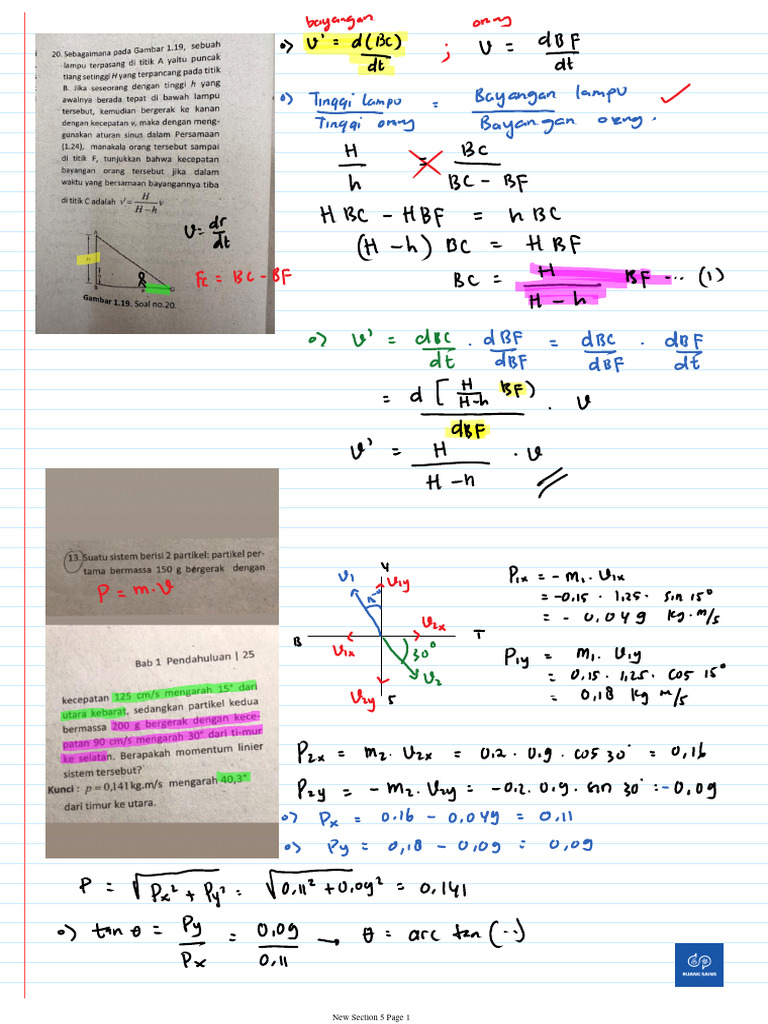 20. Sebagaimana pada Gambar 1.19, sebuah
lampu terpasang di titik A yaitu puncak
tiang setinggi H yang terpancang pada titik
B. Jika seseorang dengan tinggi h yang
awalnya berada tepat di bawah lampu
tersebut, kemudian bergerak ke kanan
dengan kecepatan v, maka dengan meng-
gunakan aturan sinus dalam Persamaan
(1.24), manakala orang tersebut sampai
di titik F, tunjukkan bahwa kecepatan
bayangan orang tersebut jika dalam
waktu yang bersamaan bayangannya tiba
di titik C adalah v' = H/(H-h) v
v = dr/dt
FC = BC - BF
Gambar 1.19. Soal no.20.
bayangan orang
o) v' = d(BC)/dt ; v = dBF/dt
o) Tinggi lampu / Tinggi orang = Bayangan lampu / Bayangan orang.
H/h = BC/(BC - BF)
H BC - H BF = h BC
(H - h) BC = H BF
BC = H/(H - h) BF ... (1)
o) v' = dBC/dt . dBF/dBF = dBC/dBF . dBF/dt
= d[H/(H-h) BF]/dBF . v
v' = H/(H - h) . v
13. Suatu sistem berisi 2 partikel: partikel per-
tama bermassa 150 g bergerak dengan
P = m.v
Bab 1 Pendahuluan | 25
kecepatan 125 cm/s mengarah 15° dari
utara kebarat, sedangkan partikel kedua
bermassa 200 g bergerak dengan kece-
patan 90 cm/s mengarah 30° dari ti-mur
ke selatan. Berapakah momentum linier
sistem tersebut?
Kunci : p = 0,141 kg.m/s mengarah 40,3°
dari timur ke utara.
v1 v1y
B v1x v2x T
30°
v2y S v2
P1x = - m1 . v1x
= -0.15 . 1.25 . sin 15°
= - 0,049 kg.m/s
P1y = m1 . v1y
= 0,15 . 1,25 . cos 15°
= 0,18 kg m/s
P2x = m2 . v2x = 0.2 . 0.9 . cos 30° = 0,16
P2y = - m2 . v2y = -0.2 . 0.9 . sin 30° = -0,09
o) Px = 0.16 - 0,049 = 0.11
o) Py = 0,18 - 0,09 = 0,09
P = √(Px² + Py²) = √(0,11² + 0,09²) = 0,141
o) tan θ = Py/Px = 0,09/0,11 → θ = arc tan (..)
RUANG SAINS
New Section 5 Page 1